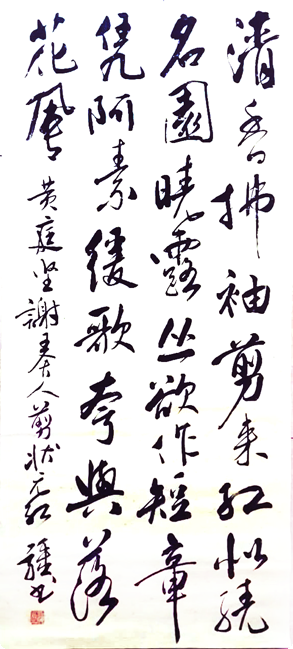 清香拂袖剪来红似繞
名園曉露丛欲作短章
凭阿素缓歌夸與落
花風 黄庭坚謝王舍人剪状元红 疆书